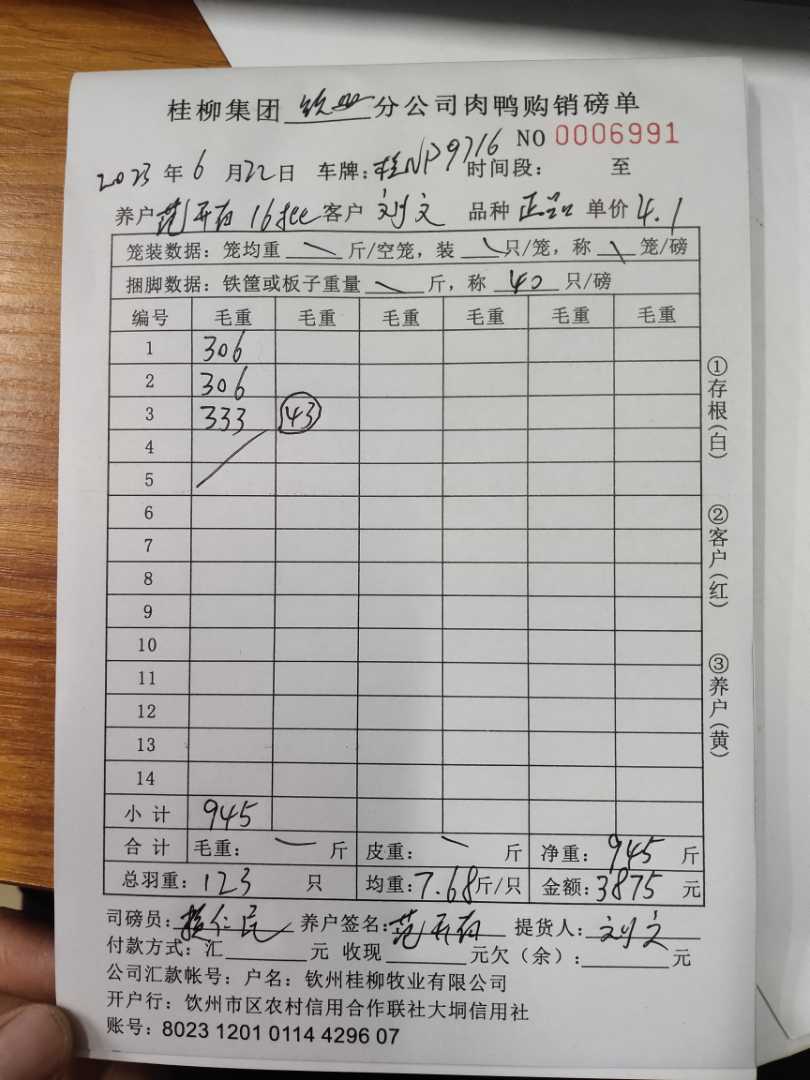 桂柳集团 钦州 分公司肉鸭购销磅单
NO 0006991
2023 年 6 月 22 日 车牌:桂NP9716 时间段: 至
养户 范开有 16批 客户 刘文 品种 正品 单价 4.1
笼装数据:笼均重 斤/空笼,装 只/笼,称 笼/磅
捆脚数据:铁筐或板子重量 斤,称 40 只/磅
编号 毛重 毛重 毛重 毛重 毛重 毛重
1 306
2 306
3 333 43
4
5
6
7
8
9
10
11
12
13
14
小计 945
合计 毛重: 斤 皮重: 斤 净重: 945 斤
总羽重: 123 只 均重: 7.68 斤/只 金额: 3875 元
司磅员: 仁民 养户签名: 范开有 提货人: 刘文
付款方式:汇 元 收现 元欠(余): 元
公司汇款帐号:户名:钦州桂柳牧业有限公司
开户行:钦州市区农村信用合作联社大垌信用社
账号:8023 1201 0114 4296 07
①存根(白)
②客户(红)
③养户(黄)